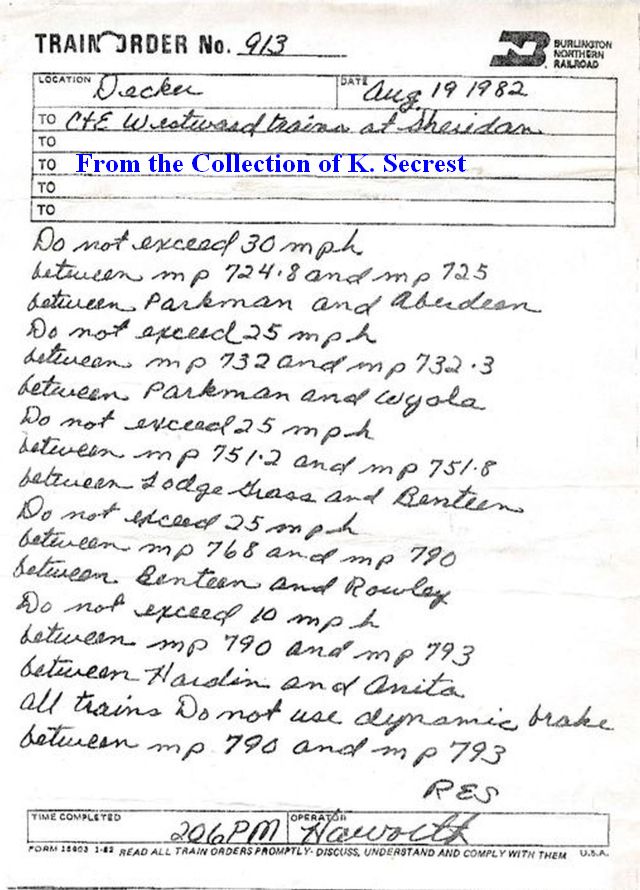 TRAIN ORDER No. 913
BURLINGTON
NORTHERN
RAILROAD
LOCATION Decker DATE Aug 19 1982
TO C&E Westward trains at Sheridan
TO
TO From the Collection of K. Secrest
TO
TO
Do not exceed 30 mph
between mp 724.8 and mp 725
between Parkman and Aberdeen
Do not exceed 25 mph
between mp 732 and mp 732.3
between Parkman and Wyola
Do not exceed 25 mph
between mp 751.2 and mp 751.8
between Lodge Grass and Benteen
Do not exceed 25 mph
between mp 768 and mp 790
between Benteen and Rowley
Do not exceed 10 mph
between mp 790 and mp 793
between Hardin and Anita
all trains Do not use dynamic brake
between mp 790 and mp 793
RES
TIME COMPLETED 206 PM OPERATOR Haworth
FORM 15603 1-82 READ ALL TRAIN ORDERS PROMPTLY- DISCUSS, UNDERSTAND AND COMPLY WITH THEM U.S.A.